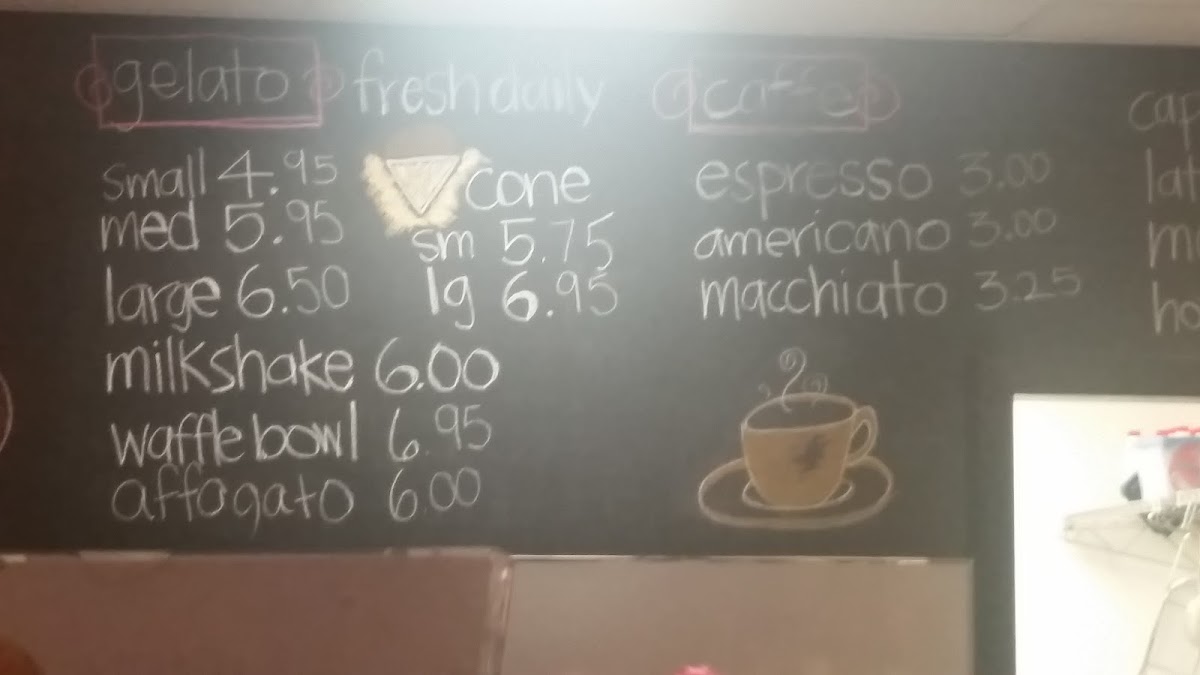 gelato fresh daily
small 4.95
med 5.95
large 6.50
cone
sm 5.75
lg 6.95
milkshake 6.00
waffle bowl 6.95
affogato 6.00
caffe
espresso 3.00
americano 3.00
macchiato 3.25
cap
lat
m
ho